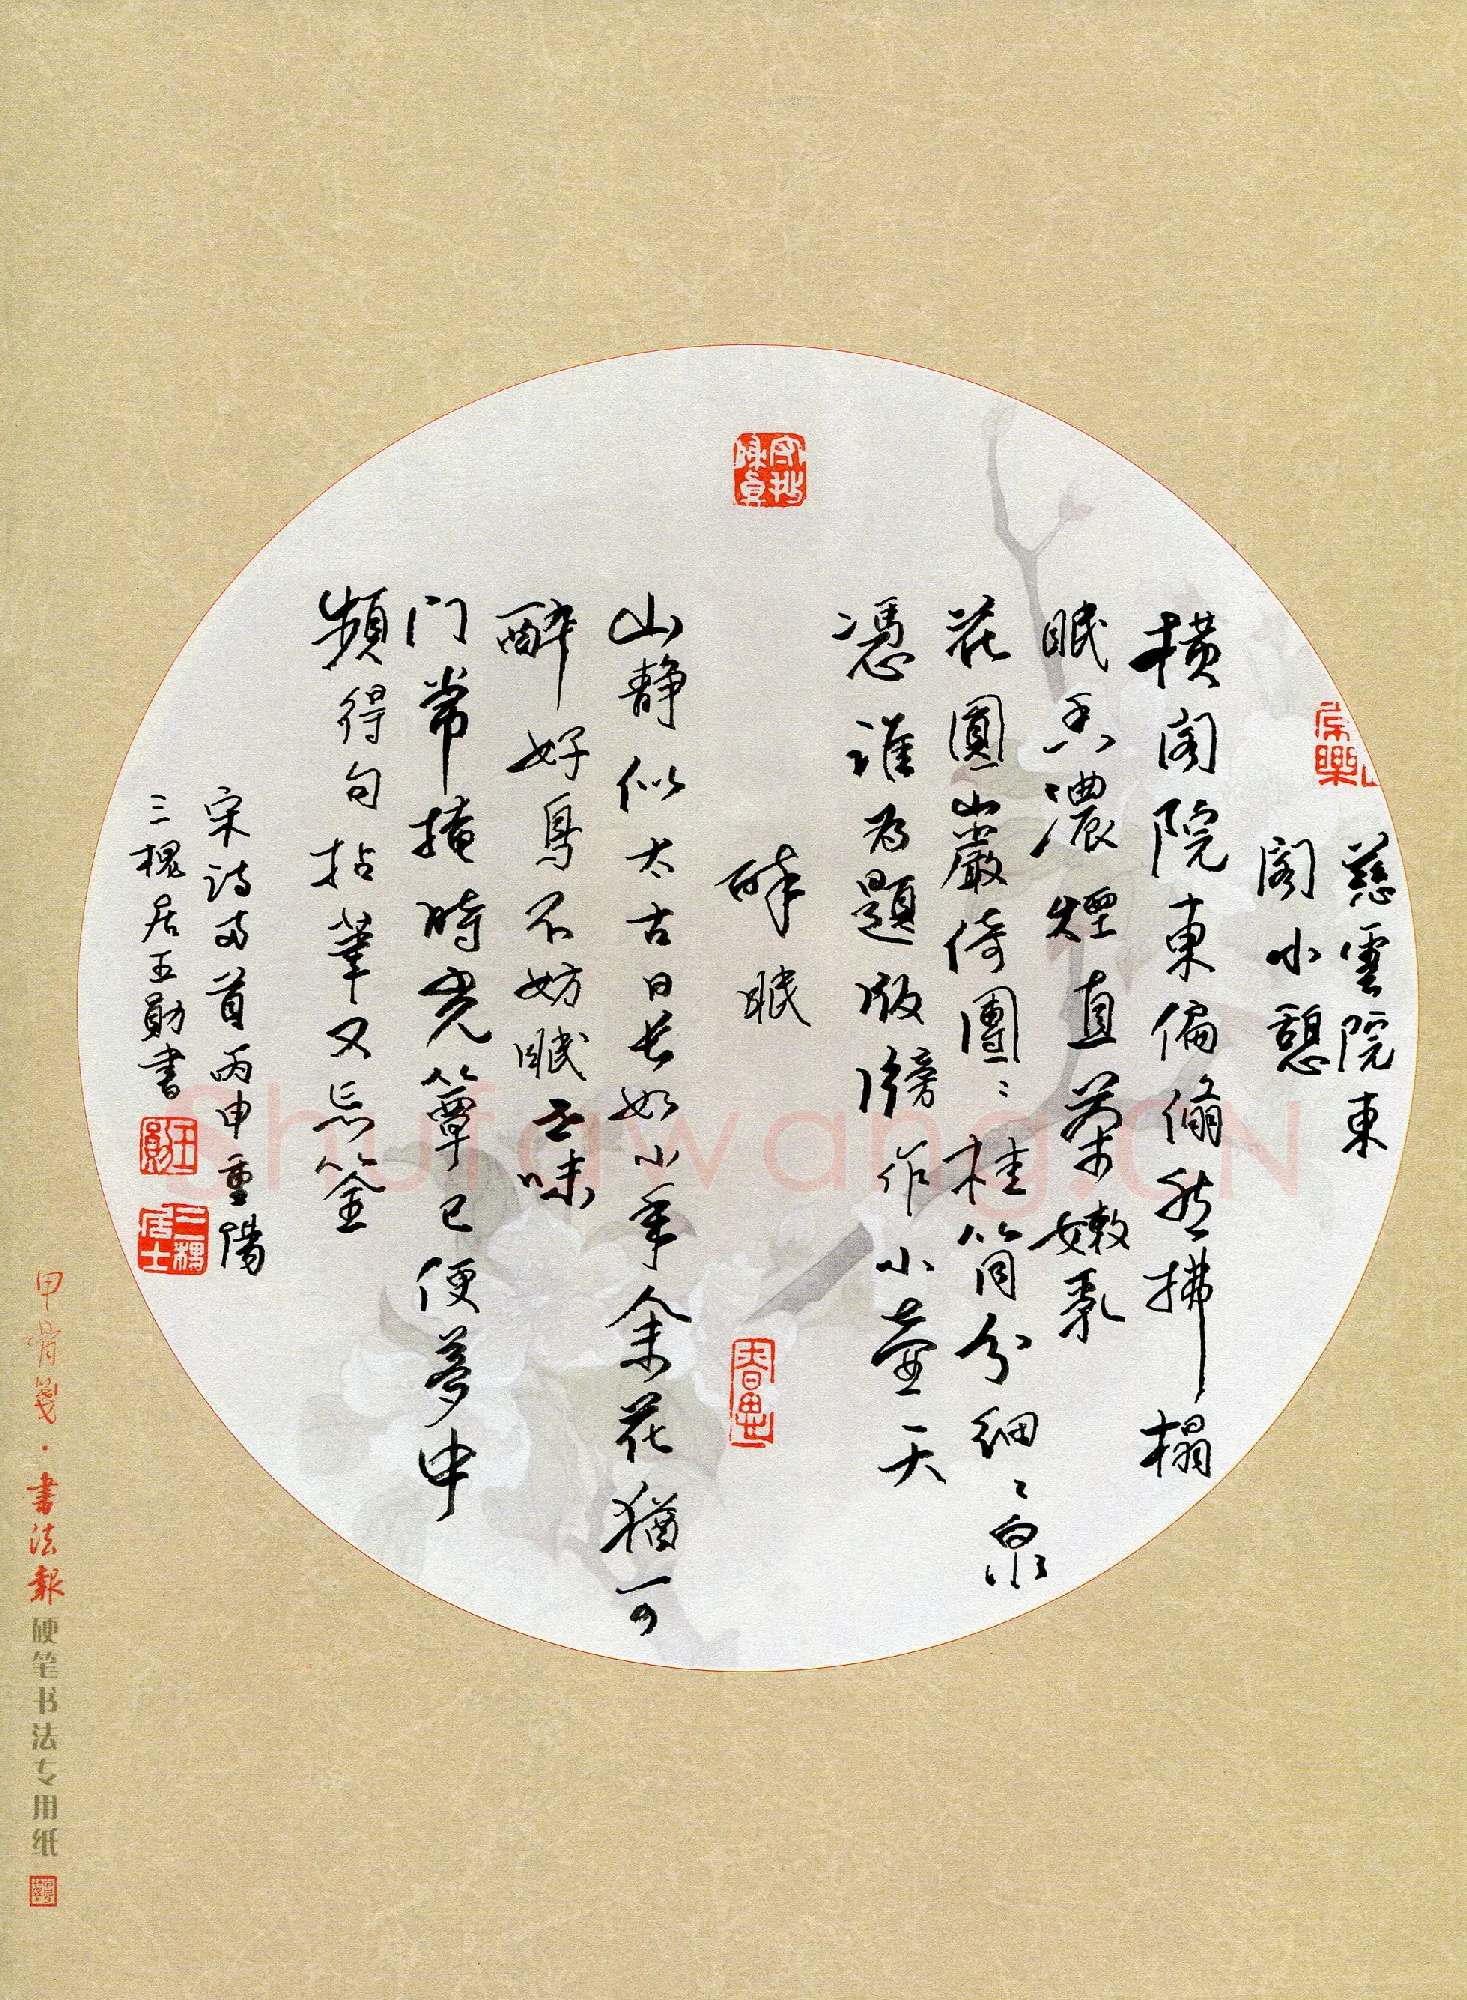 慈雲院東
閣小憩
橫閣院東偏翛然拂榻
眠香濃煙直菜嫩乳
花圓山巖倚團〻桂筒分細〻泉
憑誰為題版牓作小壺天
醉眠
山静似太古日長如小年余花猶可
醉好鳥不妨眠世味
门常掩時光簟已便夢中
頻得句拈筆又忘筌
宋詩两首丙申重陽
三槐居王勛書
王勛
三槐居士
春思
甲骨箋·書法報
硬笔书法专用纸
Shufawang.CN